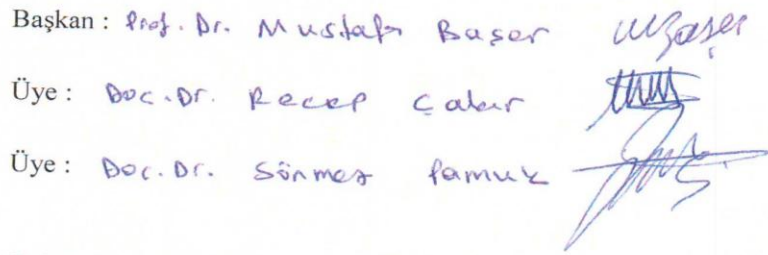 Başkan : Prof. Dr. Mustafa Başer
Üye : Doç. Dr. Recep Çakır
Üye : Doç. Dr. Sönmez Pamuk